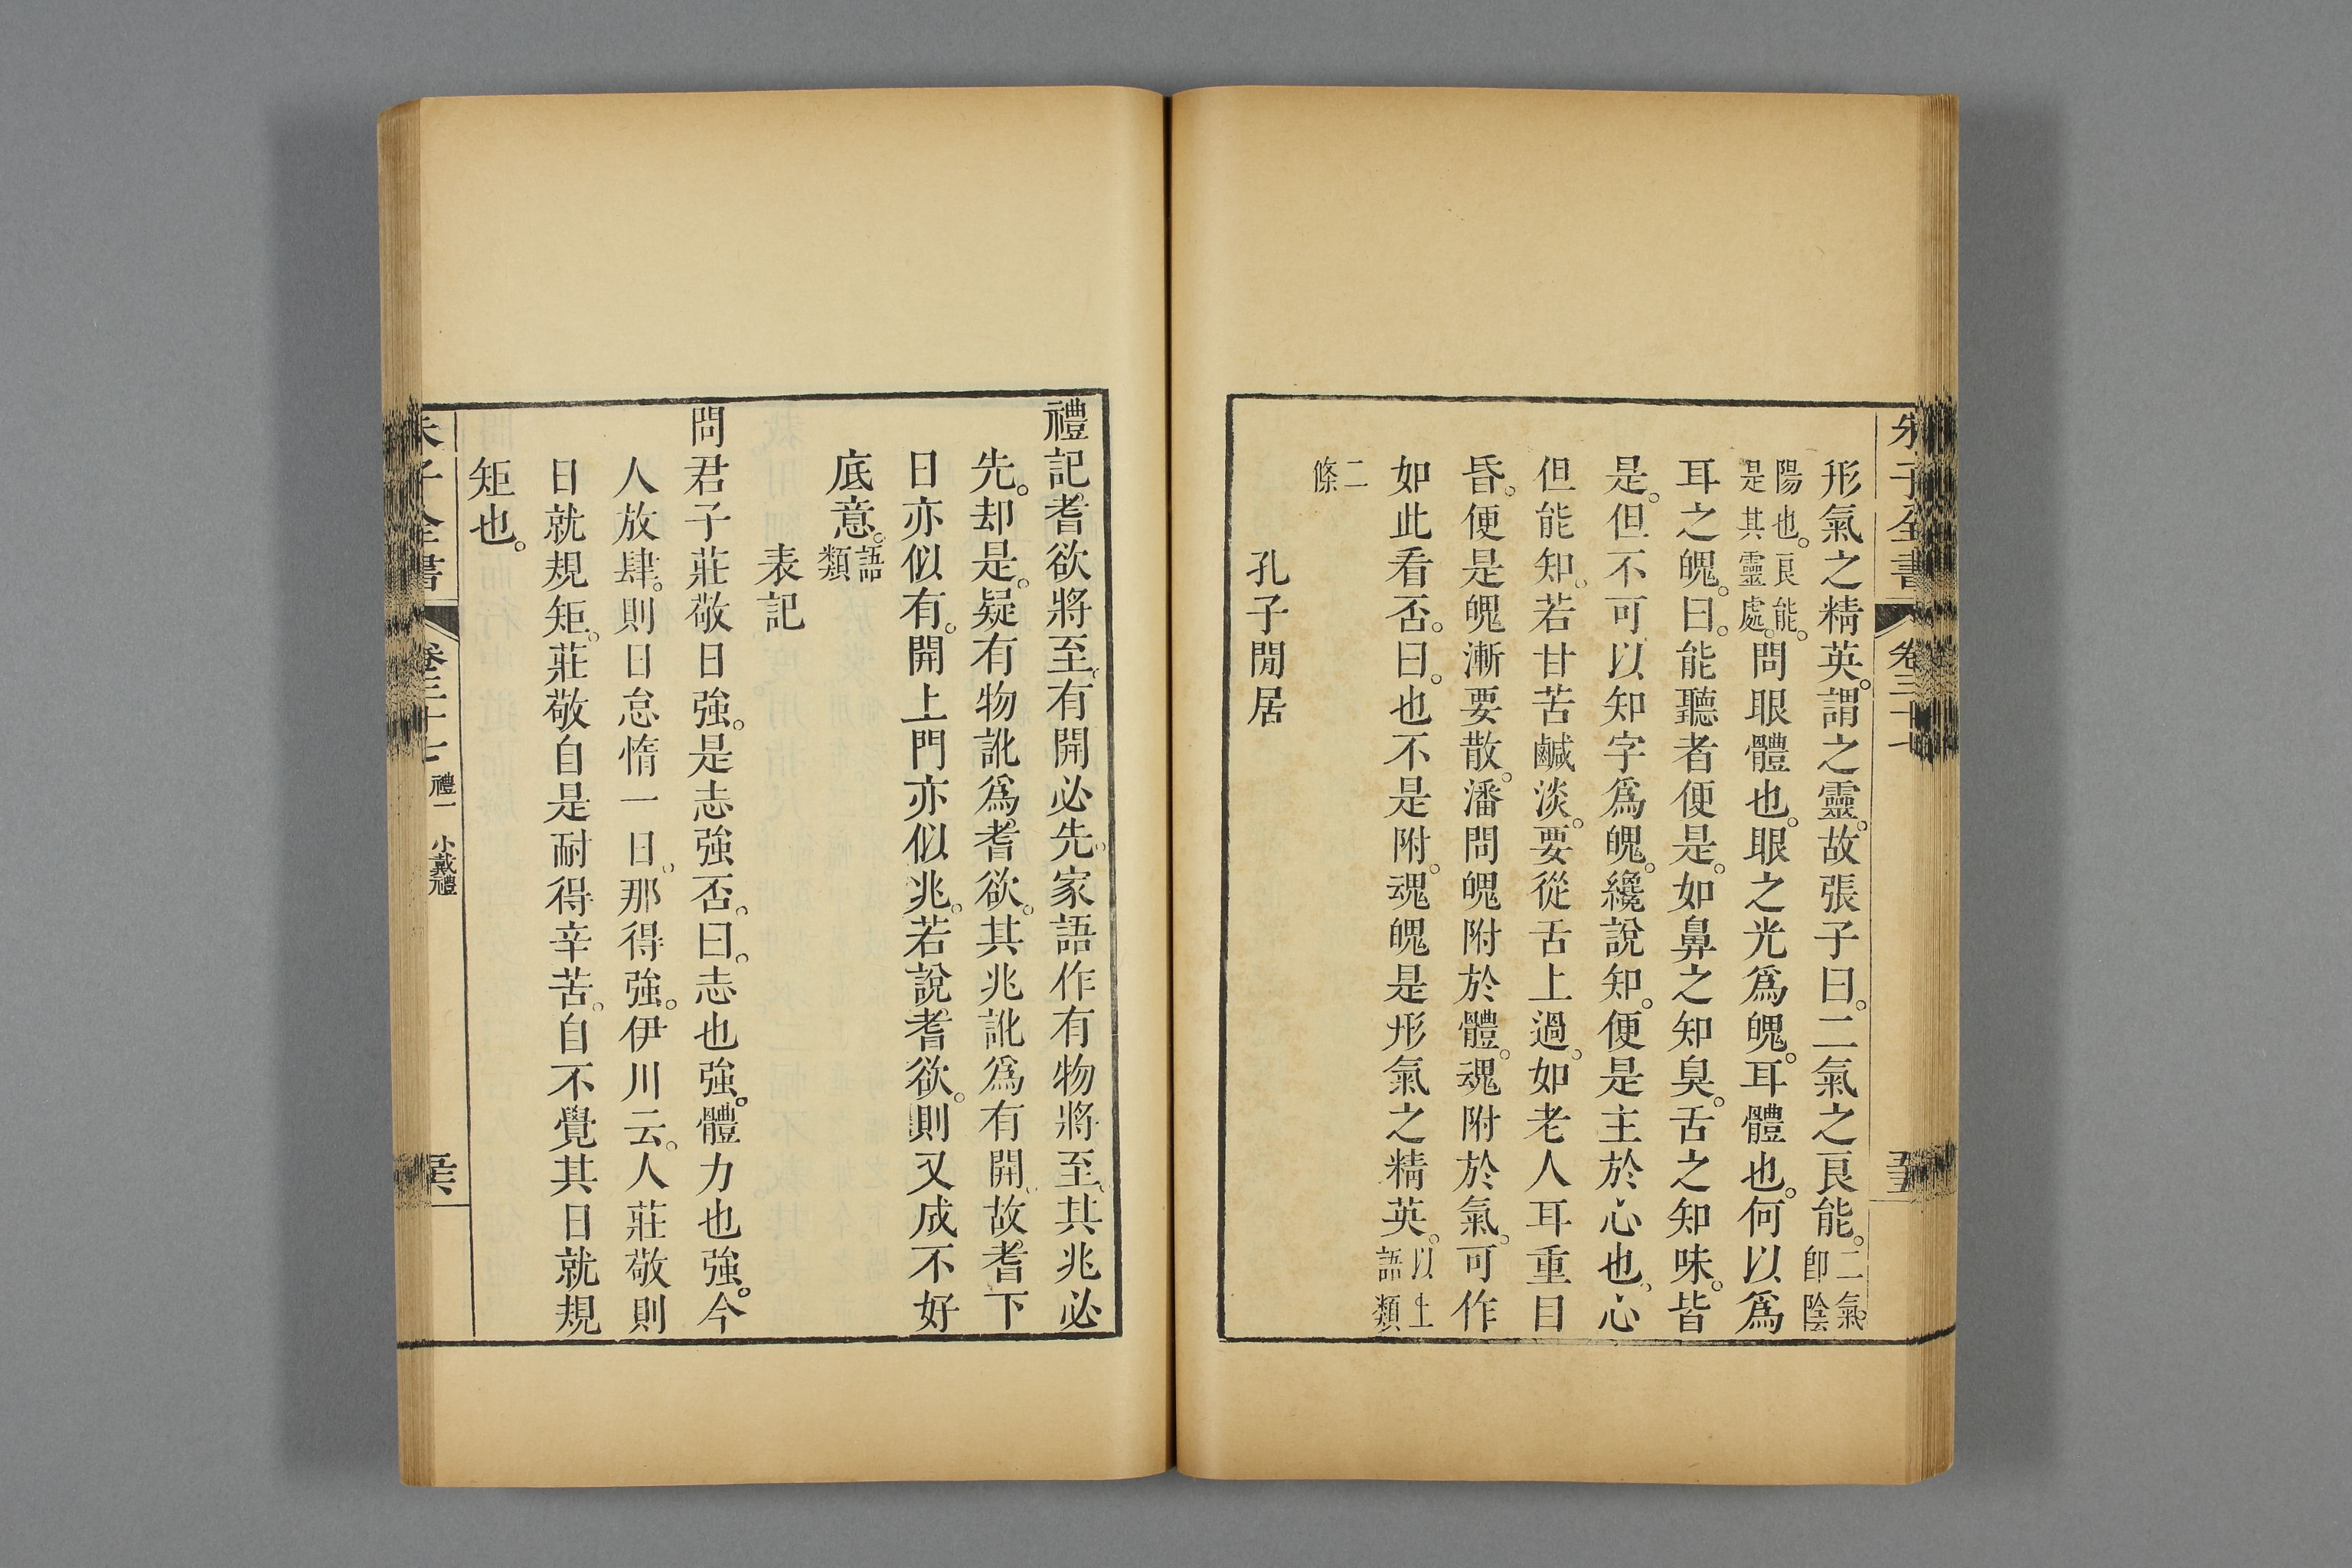 朱子全書 卷三十七
形氣之精英。謂之靈。故張子曰。二氣之良能。二氣。卽陰
陽也。良能。是其靈處。問眼體也。眼之光爲魄。耳體也。何以爲
耳之魄。曰。能聽者便是。如鼻之知臭。舌之知味。皆
是。但不可以知字爲魄。纔說知。便是主於心也。心
但能知。若甘苦鹹淡。要從舌上過。如老人耳重目
昏。便是魄漸要散。潘問魄附於體。魂附於氣。可作
如此看否。曰。也不是附。魂魄是形氣之精英。以上語類
二條
孔子閒居
禮記耆欲將至。有開必先。家語作有物將至。其兆必
先。却是。疑有物訛爲耆欲。其兆訛爲有開。故耆下
日亦似有。開上門亦似兆。若說耆欲。則又成不好
底意。語類
表記
問君子莊敬日強。是志強否。曰。志也強。體力也強。今
人放肆。則日怠惰一日。那得強。伊川云。人莊敬則
日就規矩。莊敬自是耐得辛苦。自不覺其日就規
矩也。
朱子全書 卷三十七 禮一 小戴禮